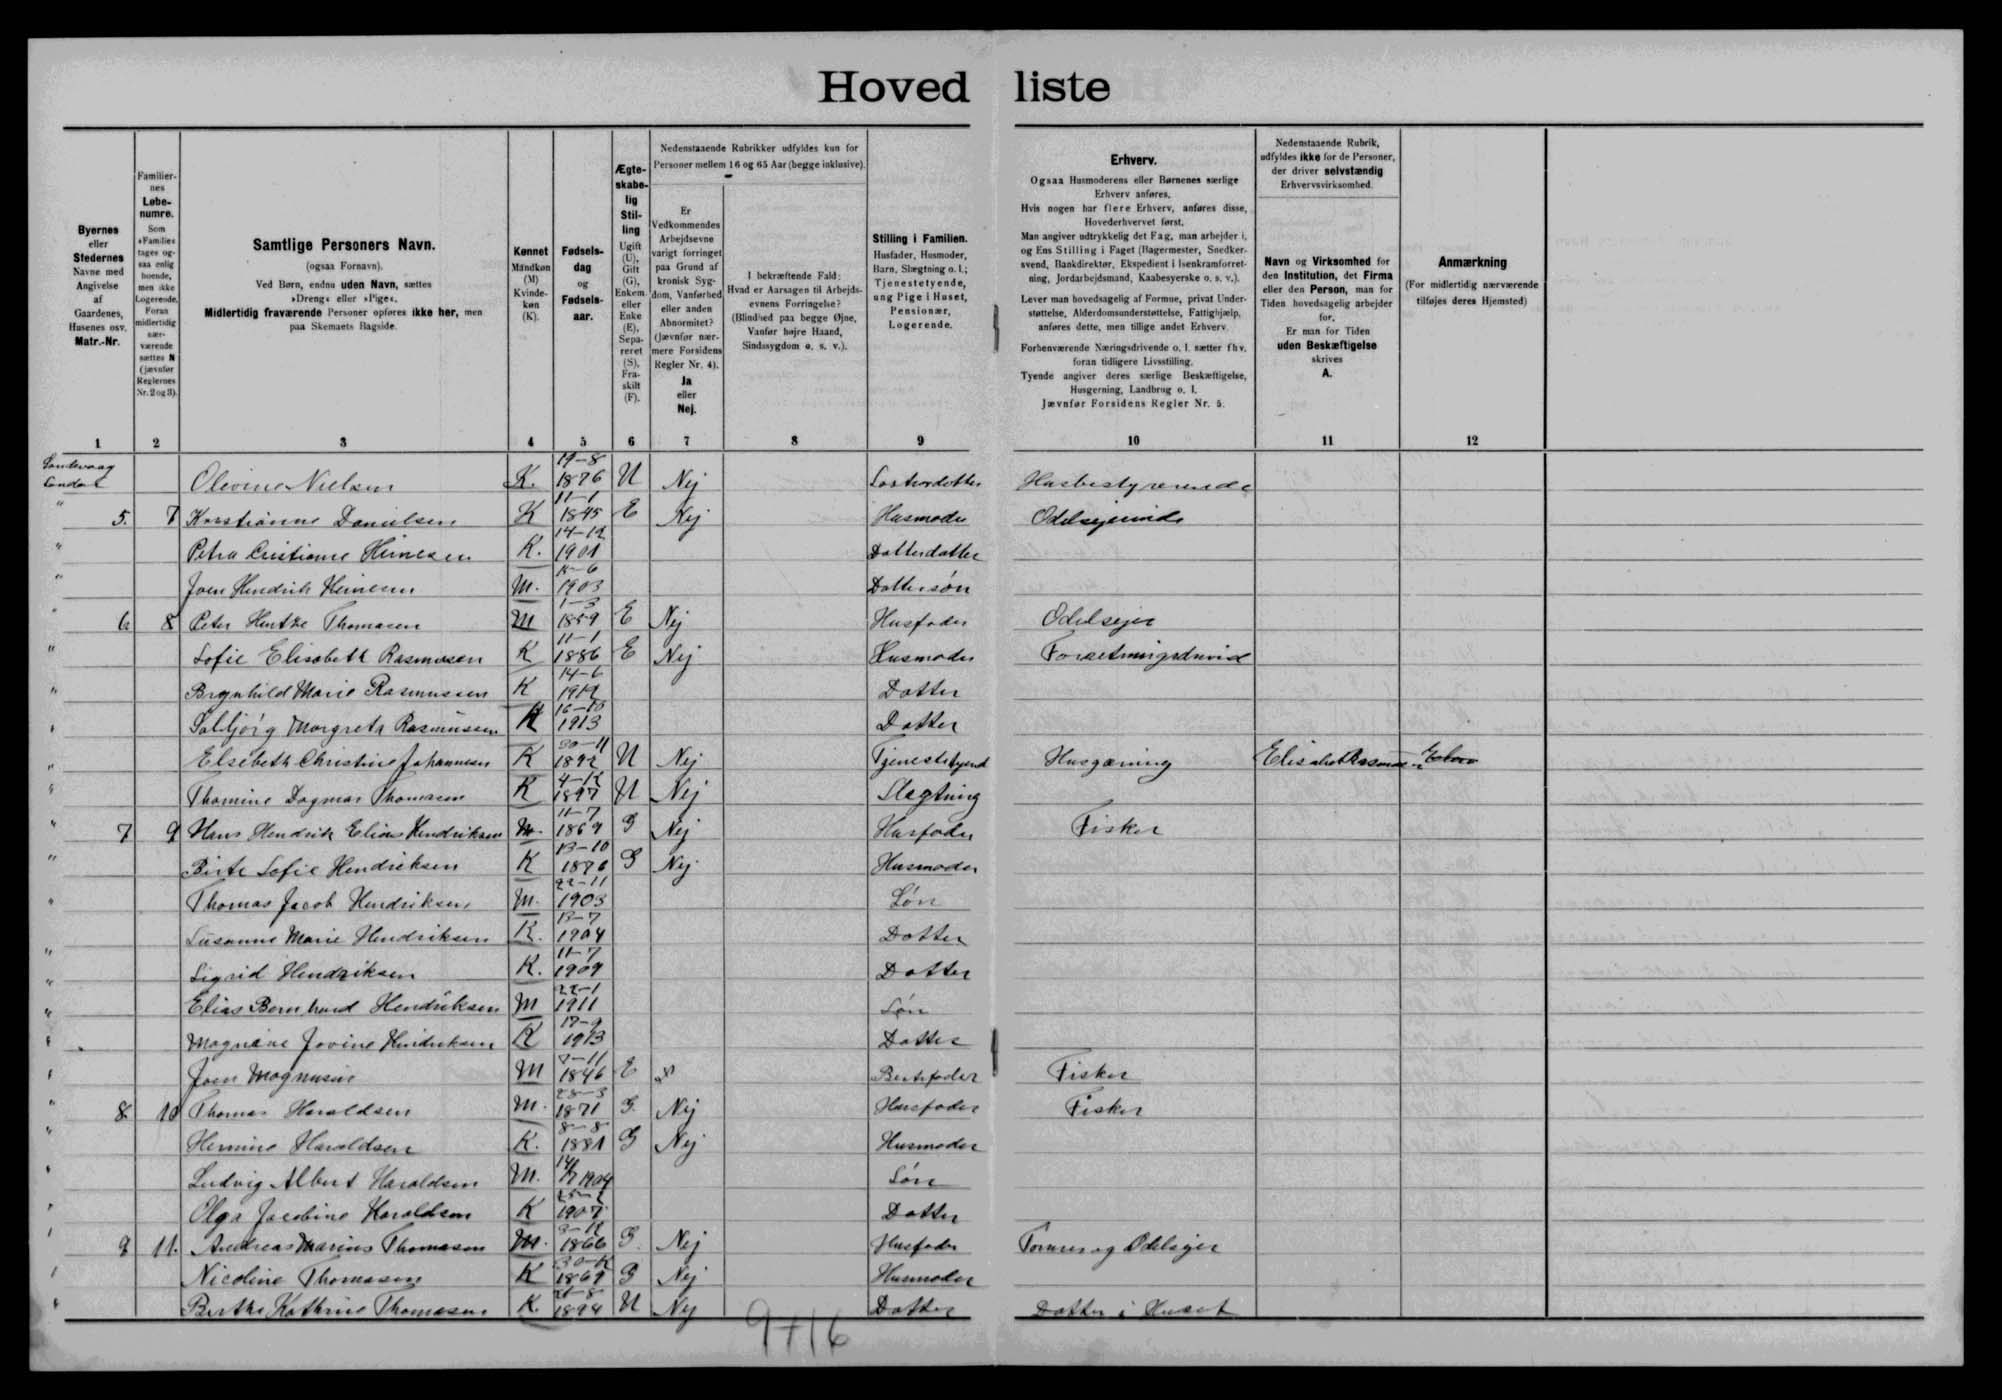 Hovedliste
Byernes
eller
Stedernes
Navne med
Angivelse
af
Gaardenes,
Husenes osv.
Matr.-Nr.
Familier-
nes
Løbe-
numre.
Som
»Familie«
tages og-
saa enlig
boende,
men ikke
Logerende.
Foran
midlertidig
nær-
værende
sættes N
(jævnfør
Reglernes
Nr. 2 og 3).
Samtlige Personers Navn.
(ogsaa Fornavn).
Ved Børn, endnu uden Navn, sættes
»Dreng« eller »Pige«.
Midlertidig fraværende Personer opføres ikke her, men
paa Skemaets Bagside.
Kønnet
Mandkøn
(M)
Kvinde-
køn
(K).
Fødsels-
dag
og
Fødsels-
aar.
Ægte-
skabe-
lig
Stil-
ling
Ugift
(U),
Gift
(G),
Enkem.
eller
Enke
(E),
Sepa-
reret
(S),
Fra-
skilt
(F).
Nedenstaaende Rubrikker udfyldes kun for
Personer mellem 16 og 65 Aar (begge inklusive).
Er
Vedkommendes
Arbejdsevne
varigt forringet
paa Grund af
kronisk Syg-
dom, Vanførhed
eller anden
Abnormitet?
(Jævnfør nær-
mere Forsidens
Regler Nr. 4).
Ja
eller
Nej.
I bekræftende Fald:
Hvad er Aarsagen til Arbejds-
evnens Forringelse?
(Blindhed paa begge Øjne,
Vanfør højre Haand,
Sindssygdom o. s. v.).
Stilling i Familien.
Husfader, Husmoder,
Barn, Slægtning o. l.;
Tjenestetyende,
ung Pige i Huset,
Pensionær,
Logerende.
Erhverv.
Ogsaa Husmoderens eller Børnenes særlige
Erhverv anføres.
Hvis nogen har flere Erhverv, anføres disse,
Hovederhvervet først.
Man angiver udtrykkelig det Fag, man arbejder i,
og Ens Stilling i Faget (Bagermester, Snedker-
svend, Bankdirektør, Ekspedient i Isenkramforret-
ning, Jordarbejdsmand, Kaabesyerske o. s. v.).
Lever man hovedsagelig af Formue, privat Under-
støttelse, Alderdomsunderstøttelse, Fattighjælp,
anføres dette, men tillige andet Erhverv.
Forhenværende Næringsdrivende o. l. sætter fhv.
foran tidligere Livsstilling.
Tyende angiver deres særlige Beskæftigelse,
Husgerning, Landbrug o. l.
Jævnfør Forsidens Regler Nr. 5.
Nedenstaaende Rubrik,
udfyldes ikke for de Personer,
der driver selvstændig
Erhvervsvirksomhed.
Navn og Virksomhed for
den Institution, det Firma
eller den Person, man for
Tiden hovedsagelig arbejder
for.
Er man for Tiden
uden Beskæftigelse
skrives
A.
Anmærkning
(For midlertidig nærværende
tilføjes deres Hjemsted)
1 2 3 4 5 6 7 8 9 10 11 12
Sandevaag
Olevine Nielsen K. 19-8 1876 U Nej Husbestyrerinde
" 5. 7 Danielsen K 11-1 1845 E Nej Husmoder Odelsejerinde
" Petra Cristiane Heinesen K. 14-12 1901 Datterdatter
" Joen Hendrik Heinesen M. 1903 Dattersøn
" 6 8 Peter Hentze Thomasen M 1-3 1859 E Nej Husfader Odelsejer
" Sofie Elisabeth Rasmussen K 11-1 1886 E Nej Husmoder
" Brynhild Marie Rasmussen K 14-6 1912 Datter
" Solbjörg Margreta Rasmussen K 16-10 1913 Datter
" Elsebeth Christine Johannesen K 30-11 1892 U Nej Tjenestetyend Husgærning
" Thomine Dagmar Thomasen K 4-12 1897 U Nej Slægtning
" 7 9 Hans Hendrik Elias Hendriksen M. 11-7 1869 G Nej Husfader Fisker
" Birte Sofie Hendriksen K 13-10 1876 G Nej Husmoder
" Thomas Jacob Hendriksen M. 22-11 1903 Søn
Susanne Marie Hendriksen K. 13-7 1904 Datter
" Sigrid Hendriksen K. 11-7 1909 Datter
" Elias Bernhard Hendriksen M 22-1 1911 Søn
" Jovine Hendriksen K 17-9 1913 Datter
" Joen Magnusen M 7-11 1846 E Fisker
" 8 10 Thomas Haraldsen M. 28-3 1871 G. Nej Husfader Fisker
" Hermine Haraldsen K. 8-8 1881 G Nej Husmoder
" Ludvig Albert Haraldsen M. 1904 Søn
" Olga Jacobine Haraldsen K 1907 Datter
" 9 11. Andreas Marius Thomasen M. 3-12 1866 G. Nej Husfader og Odelsejer
" Nicoline Thomasen K 1869 G Nej Husmoder
" Birthe Kathrine Thomasen K. 1894 U Nej Datter Datter i Huset
9+16